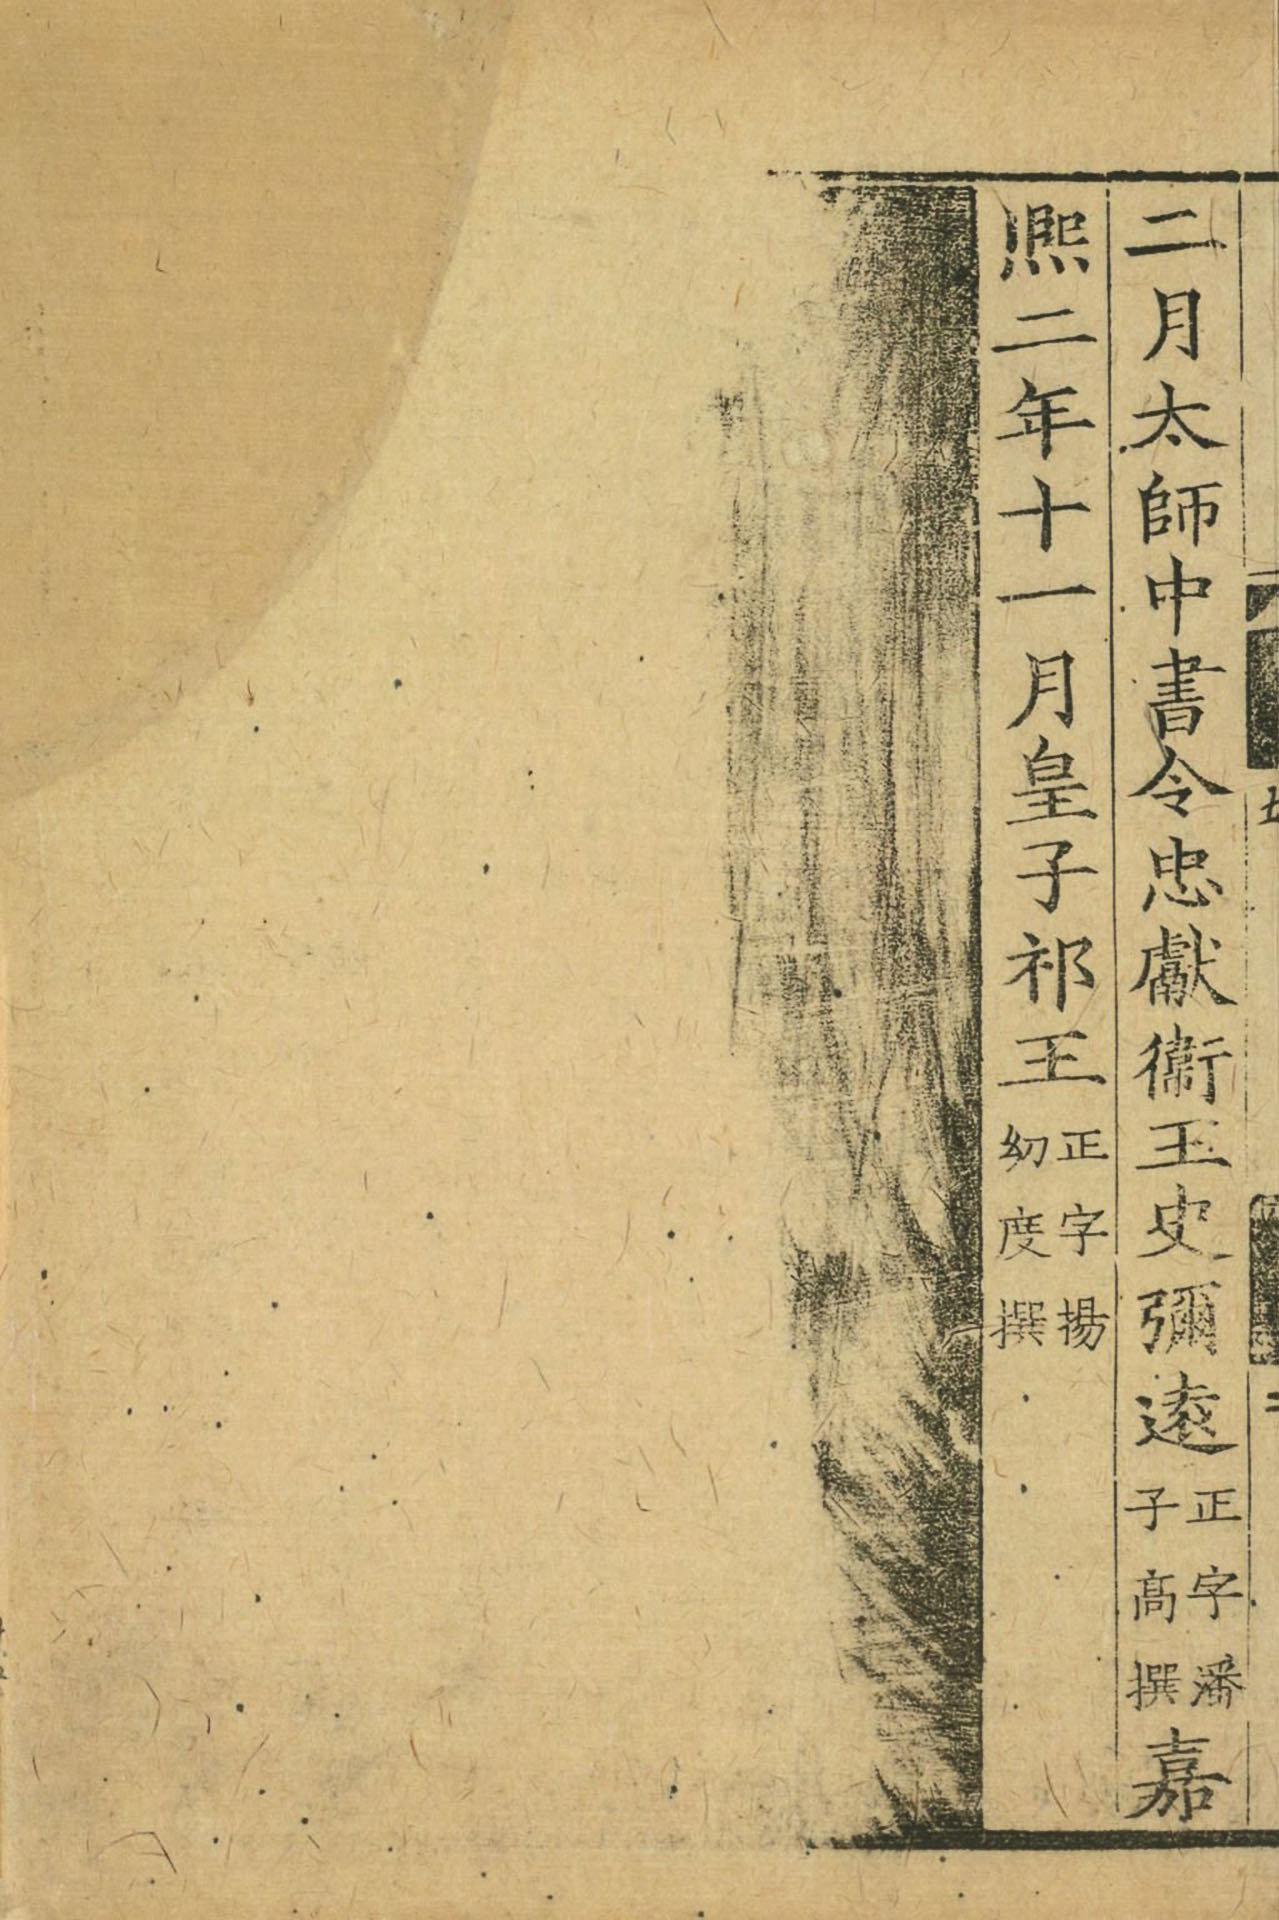 二月太師中書令忠獻衞王史彌遠正字潘子高撰嘉
熈二年十一月皇子祁王正字揚幼度撰